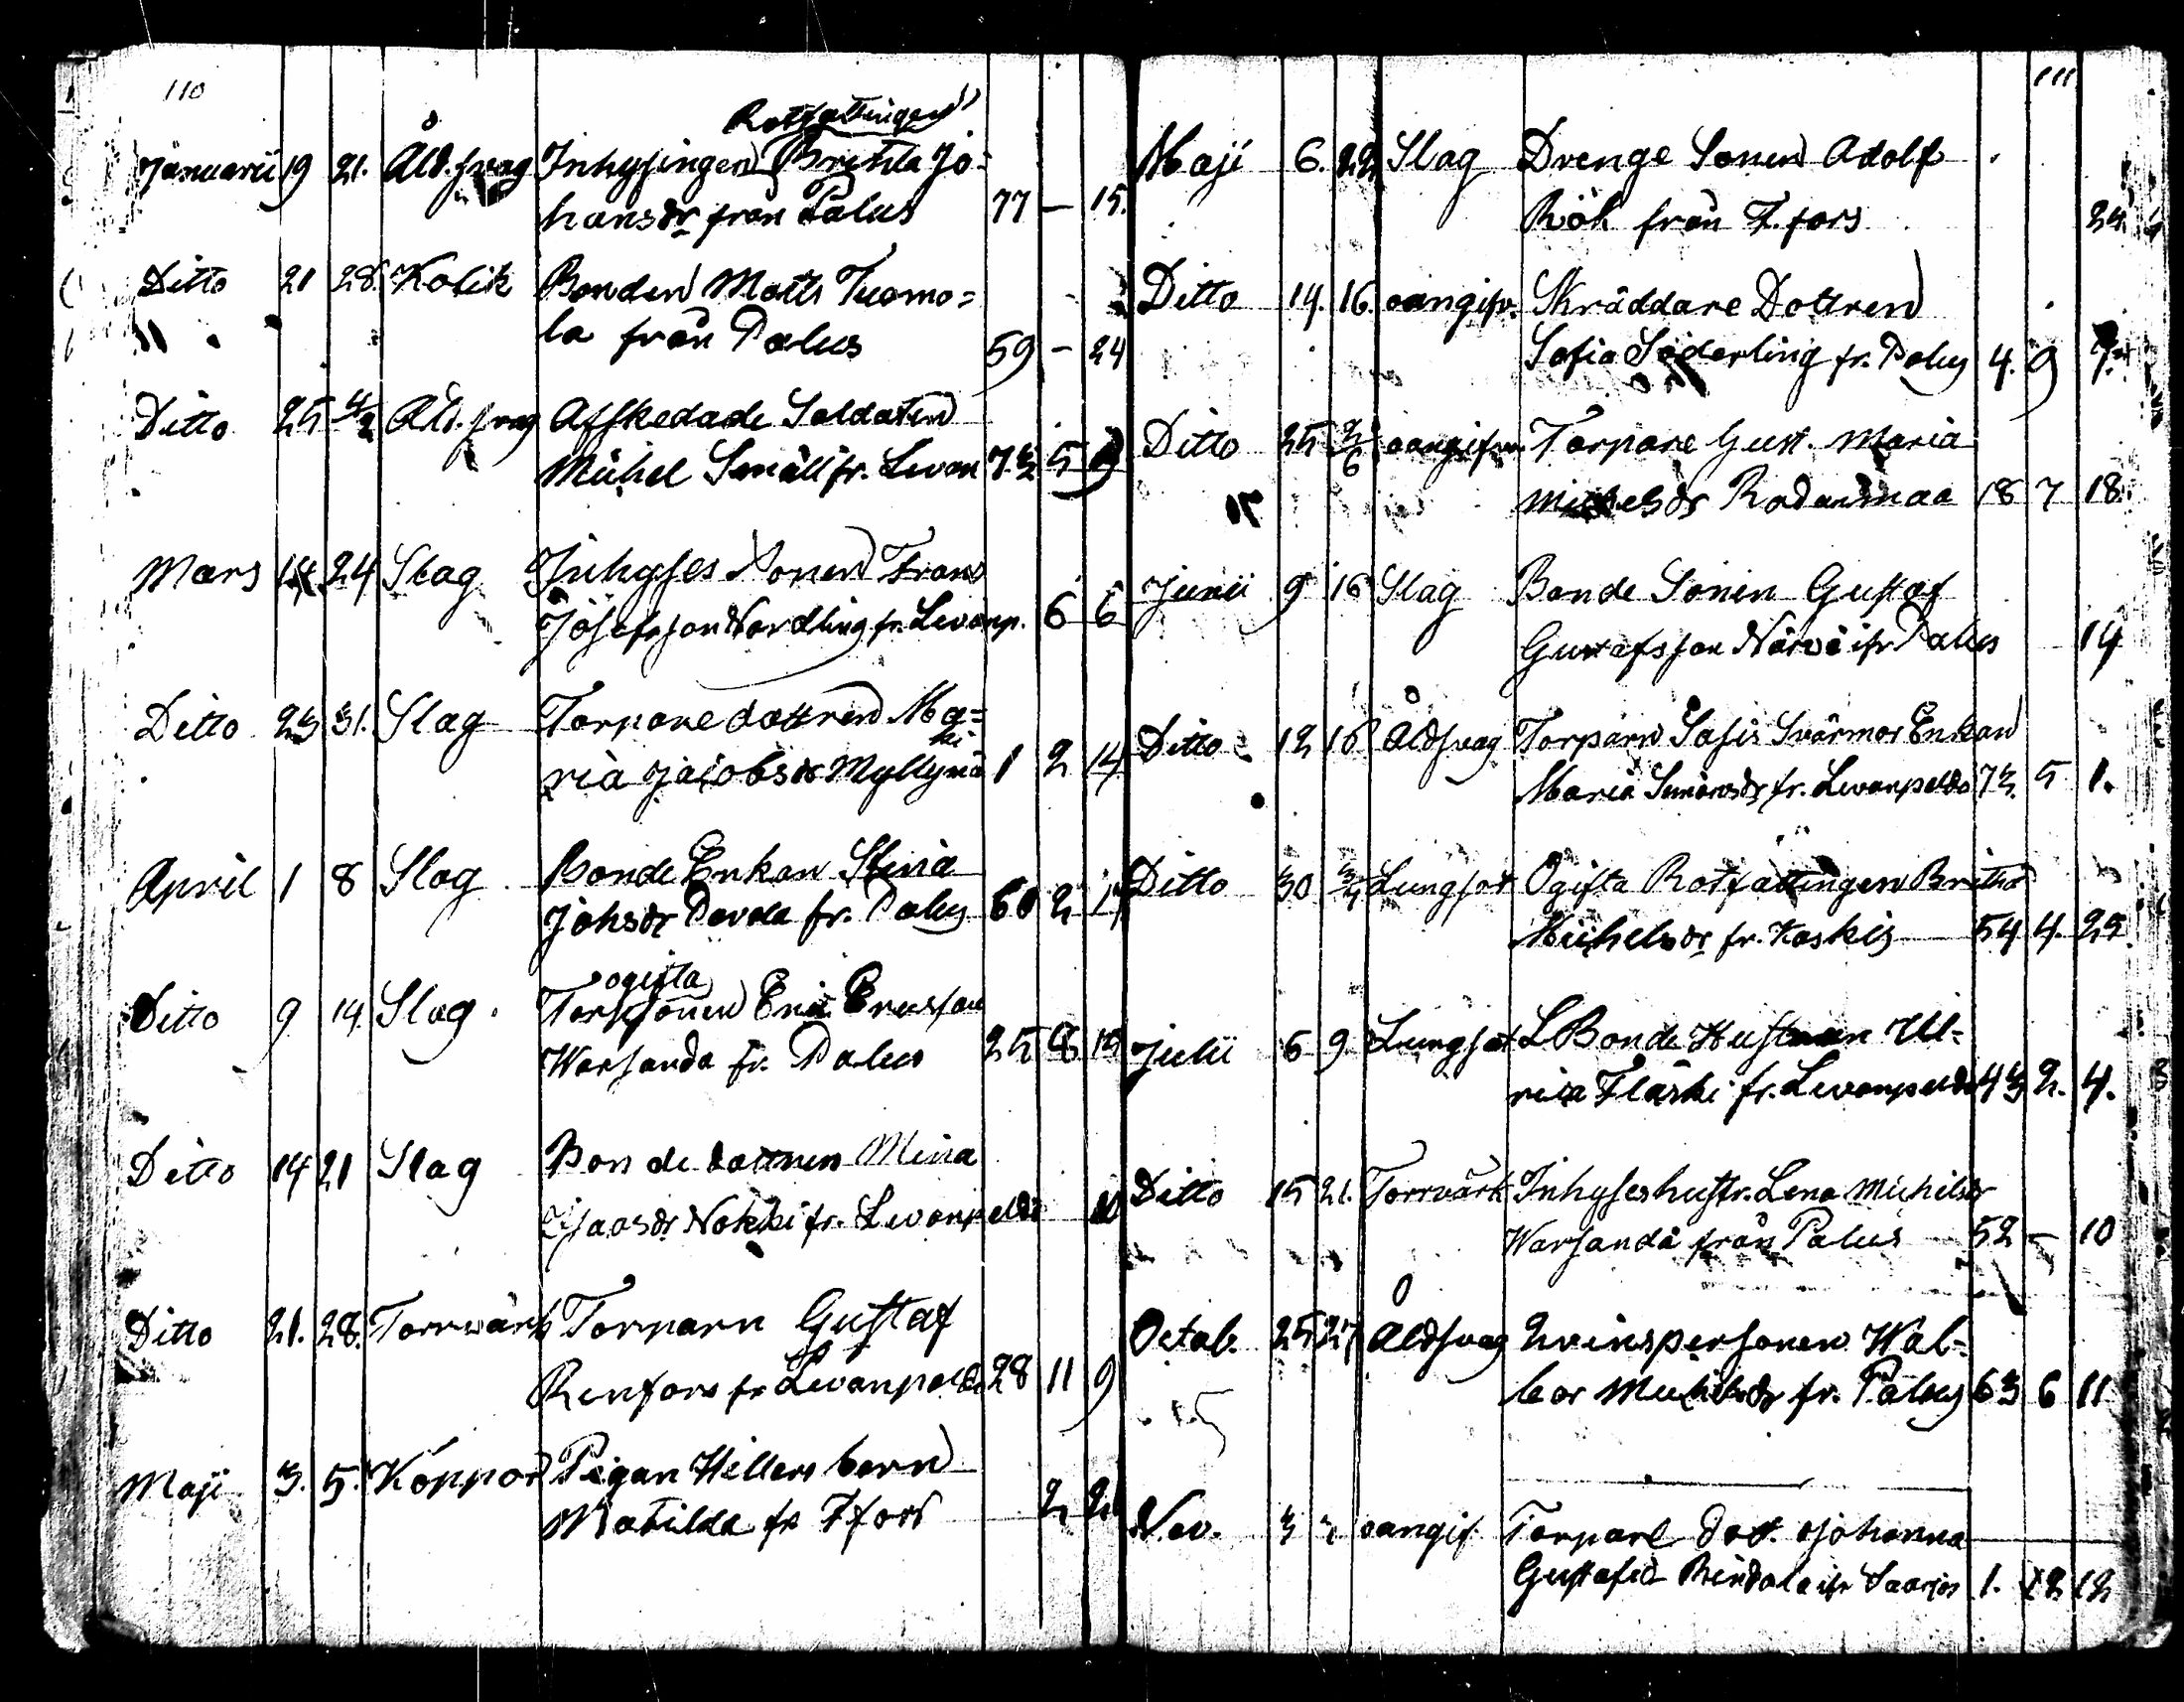 110
Rotfattingen
Januarii 19 21. Åld.svag Inhysingen Britha Jo=
hansdr från Palus 77 — 15.
Ditto 21 28. Kolik Bonden Matts Tuomo=
la från Palus 59 — 24
Ditto 25 4/2 Åld.svag Afskedade Soldaten
Michel Småll fr. Levan 73 5 9
Mars 14 24 Slag Inhyses Sonen Frans
Josefsson Nordling fr. Levanp. 6 6
Ditto 23 31. Slag Torpare dottren Ma=
ria Jacobsdr Myllymä 1 2 14
ki
April 1 8 Slag Bonde Enkan Stina
Johsdr Pavola fr. Palus 60 2
ogifta
Ditto 9 14. Slag. Torpsonen Eric Ericsson
Warsanda fr. Palus 25 8 15
Ditto 14 21 Slag Bonde dottren Mina
Isaacsdr Nokki fr. Levanpeldo
Ditto 21. 28. Torrwärk Torparn Gustaf
Renfors fr Levanpeldo 28 11 9
Maji 3. 5. Koppor Pigan Hellers barn
Matilda fr Ffors 2 21
111
Maji 6. 22 Slag Drenge Sonen Adolf
Rök från F.fors 24
Ditto 14. 16. oangifv. Skräddare Dottren
Sofia Söderling fr. Palus 4. 9 7.
Ditto 25 2/6 oangifven Torpare Hust. Maria
Michelsdr Rodanmaa 18 7 18.
Junii 9 16 Slag Bonde Sonen Gustaf
Gustafsson Närvä ifr Palus 14
Ditto 12 16 Åldsvag Torparn Safis Svärmor Enkan
Maria Simonsdr fr. Levanpeldo 73. 5 1.
Ditto 30 Lungsot Ogifta Rotfattingen Britha
Michelsdr fr. Koskis 54 4. 25.
Julii 6 9 Lungsot L Bonde Hustrun Ul-
rica Fläski fr. Levanpeldo 43 2. 4.
Ditto 15 21. Torrvärk Inhyseshustr. Lena Michelsdr
Warsanda från Palus 52 — 10
Octob. 25 27 Åldsvag Qvinspersonen Wal-
bor Michelsdr fr. Palus 63 6 11
Nov. 3 oangif. Torpare dott. Johanna
Gustafsd Rindala ifr Saarios 1. 12 12